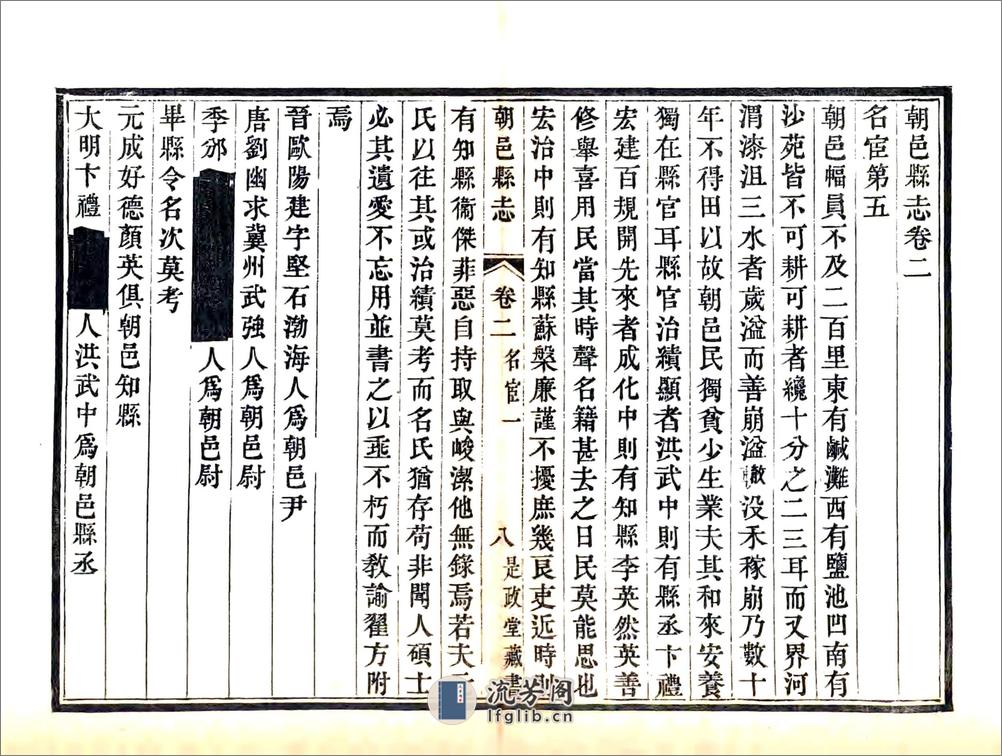 朝邑縣志卷二
名宦第五
朝邑幅員不及二百里東有鹹灘西有鹽池凹南有
沙苑皆不可耕可耕者纔十分之二三耳而又界河
渭漆沮三水者歲溢而善崩溢敝没禾稼崩乃數十
年不得田以故朝邑民獨貧少生業夫其和來安養
獨在縣官耳縣官治績顯者洪武中則有縣丞卞禮
宏建百規開先來者成化中則有知縣李英然英善
修舉喜用民當其時聲名籍甚去之日民莫能思也
宏治中則有知縣蘇槃廉謹不擾庶幾良吏近時則
朝邑縣志 卷二 名宦一 八 是政堂藏書
有知縣衛傑菲惡自持取與峻潔他無錄焉若夫
氏以往其或治績莫考而名氏猶存苟非聞人碩士
必其遺愛不忘用並書之以埀不朽而教諭翟方附
焉
晉歐陽建字堅石渤海人爲朝邑尹
唐劉幽求冀州武強人爲朝邑尉
季邠 人爲朝邑尉
畢縣令名次莫考
元成好德顏英俱朝邑知縣
大明卞禮 人洪武中爲朝邑縣丞
流芳阁
lfglib.cn